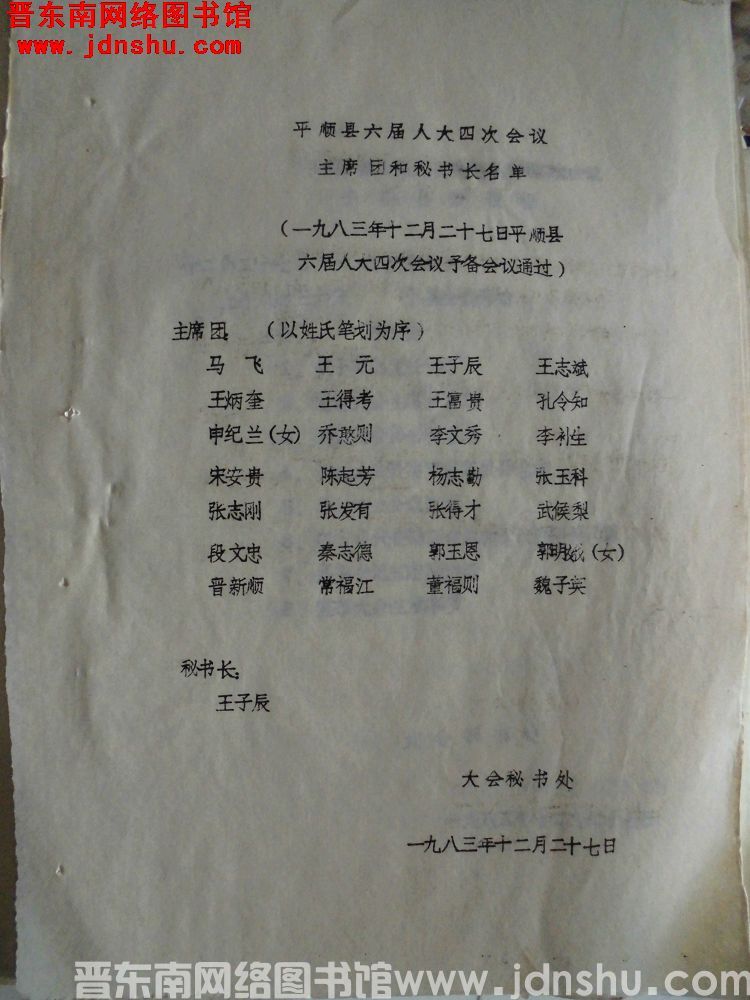 晋东南网络图书馆
www.jdnshu.com
平顺县六届人大四次会议
主席团和秘书长名单
(一九八三年十二月二十七日平顺县
六届人大四次会议予备会议通过)
主席团: (以姓氏笔划为序)
马飞 王元 王子辰 王志斌
王炳奎 王得考 王富贵 孔令知
申纪兰(女) 乔憨则 李文秀 李补生
宋安贵 陈起芳 杨志勤 张玉科
张志刚 张发有 张得才 武候梨
段文忠 秦志德 郭玉恩 郭明娥(女)
晋新顺 常福江 董福则 魏子宾
秘书长:
王子辰
大会秘书处
一九八三年十二月二十七日
晋东南网络图书馆www.jdnshu.com